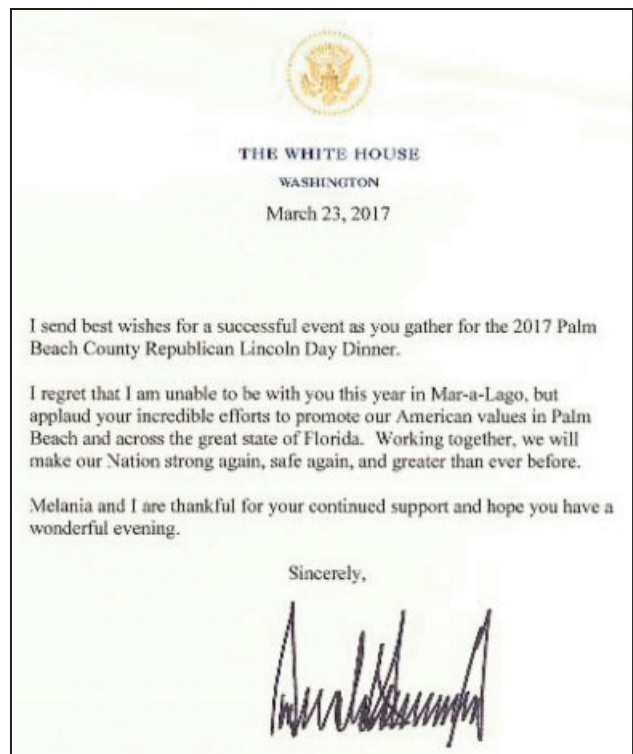 THE WHITE HOUSE
WASHINGTON
March 23, 2017
I send best wishes for a successful event as you gather for the 2017 Palm
Beach County Republican Lincoln Day Dinner.
I regret that I am unable to be with you this year in Mar-a-Lago, but
applaud your incredible efforts to promote our American values in Palm
Beach and across the great state of Florida.  Working together, we will
make our Nation strong again, safe again, and greater than ever before.
Melania and I are thankful for your continued support and hope you have a
wonderful evening.
Sincerely,